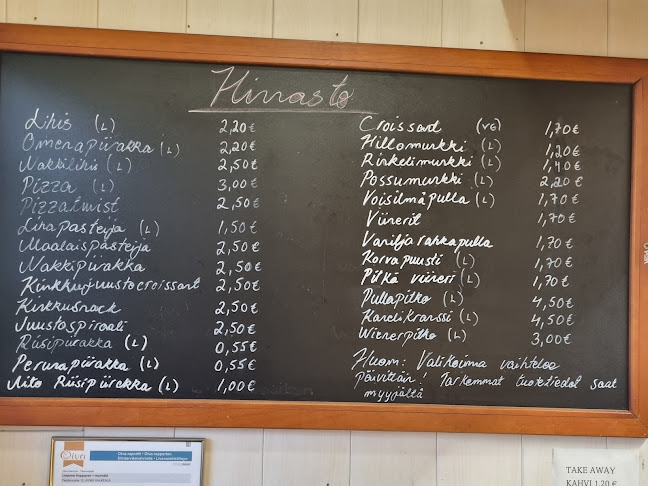 Hinnasto
Lihis (L) 2,20€
Omenapiirakka (L) 2,20€
Nakkilihis (L) 2,50€
Pizza (L) 3,00€
Pizzatwist 2,50€
Lihapasteija (L) 1,50€
Maalaispasteija 2,50€
Nakkipiirakka 2,50€
Kinkkujuustocroissant 2,50€
Kinkkusnack 2,50€
Juustospiraali 2,50€
Riisipiirakka (L) 0,55€
Perunapiirakka (L) 0,55€
Aito Riisipiirakka (L) 1,00€
Croissant (VG) 1,70€
Hillomunkki (L) 1,20€
Rinkelimunkki (L) 1,40€
Possumunkki (L) 2,20€
Voisilmäpulla (L) 1,70€
Viinerit 1,70€
Vaniljarahkapulla 1,70€
Korvapuusti (L) 1,70€
Pitkä viineri (L) 1,70€
Pullapitko (L) 4,50€
Kanelikranssi (L) 4,50€
Wienerpitko (L) 3,00€
Huom: Valikoima vaihtelee
päivittäin! Tarkemmat tuotetiedot saat
myyjältä
Oiva
Oiva-raportti • Oiva-rapporten
TAKE AWAY
KAHVI 1,20 €